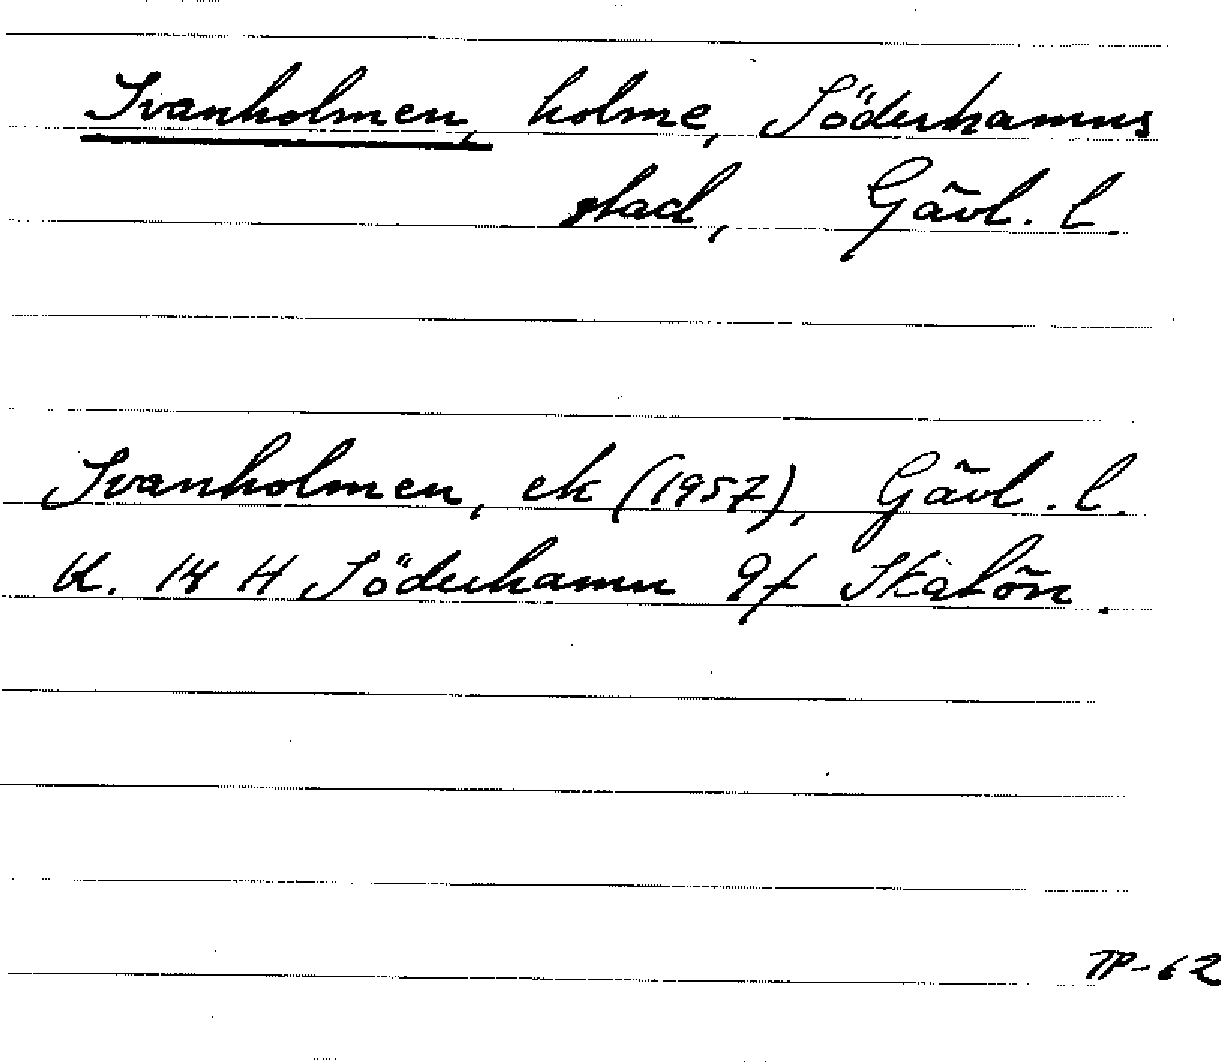 Ivanholmen, holme, Söderhamns
stad, Gävl. l.
Ivanholmen, ek (1957), Gävl. l.
K. 14 H Söderhamn 9f Skatön.
TP-62